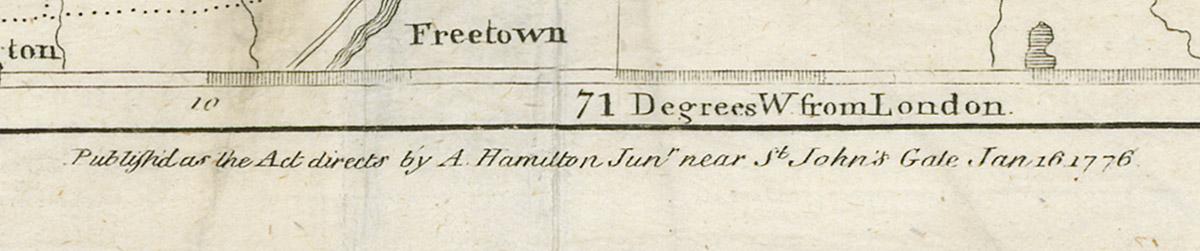 Freetown
ton
10
71 Degrees W. from London.
Publish'd as the Act directs by A. Hamilton Junr near St. John's Gate Jan 16 1776.